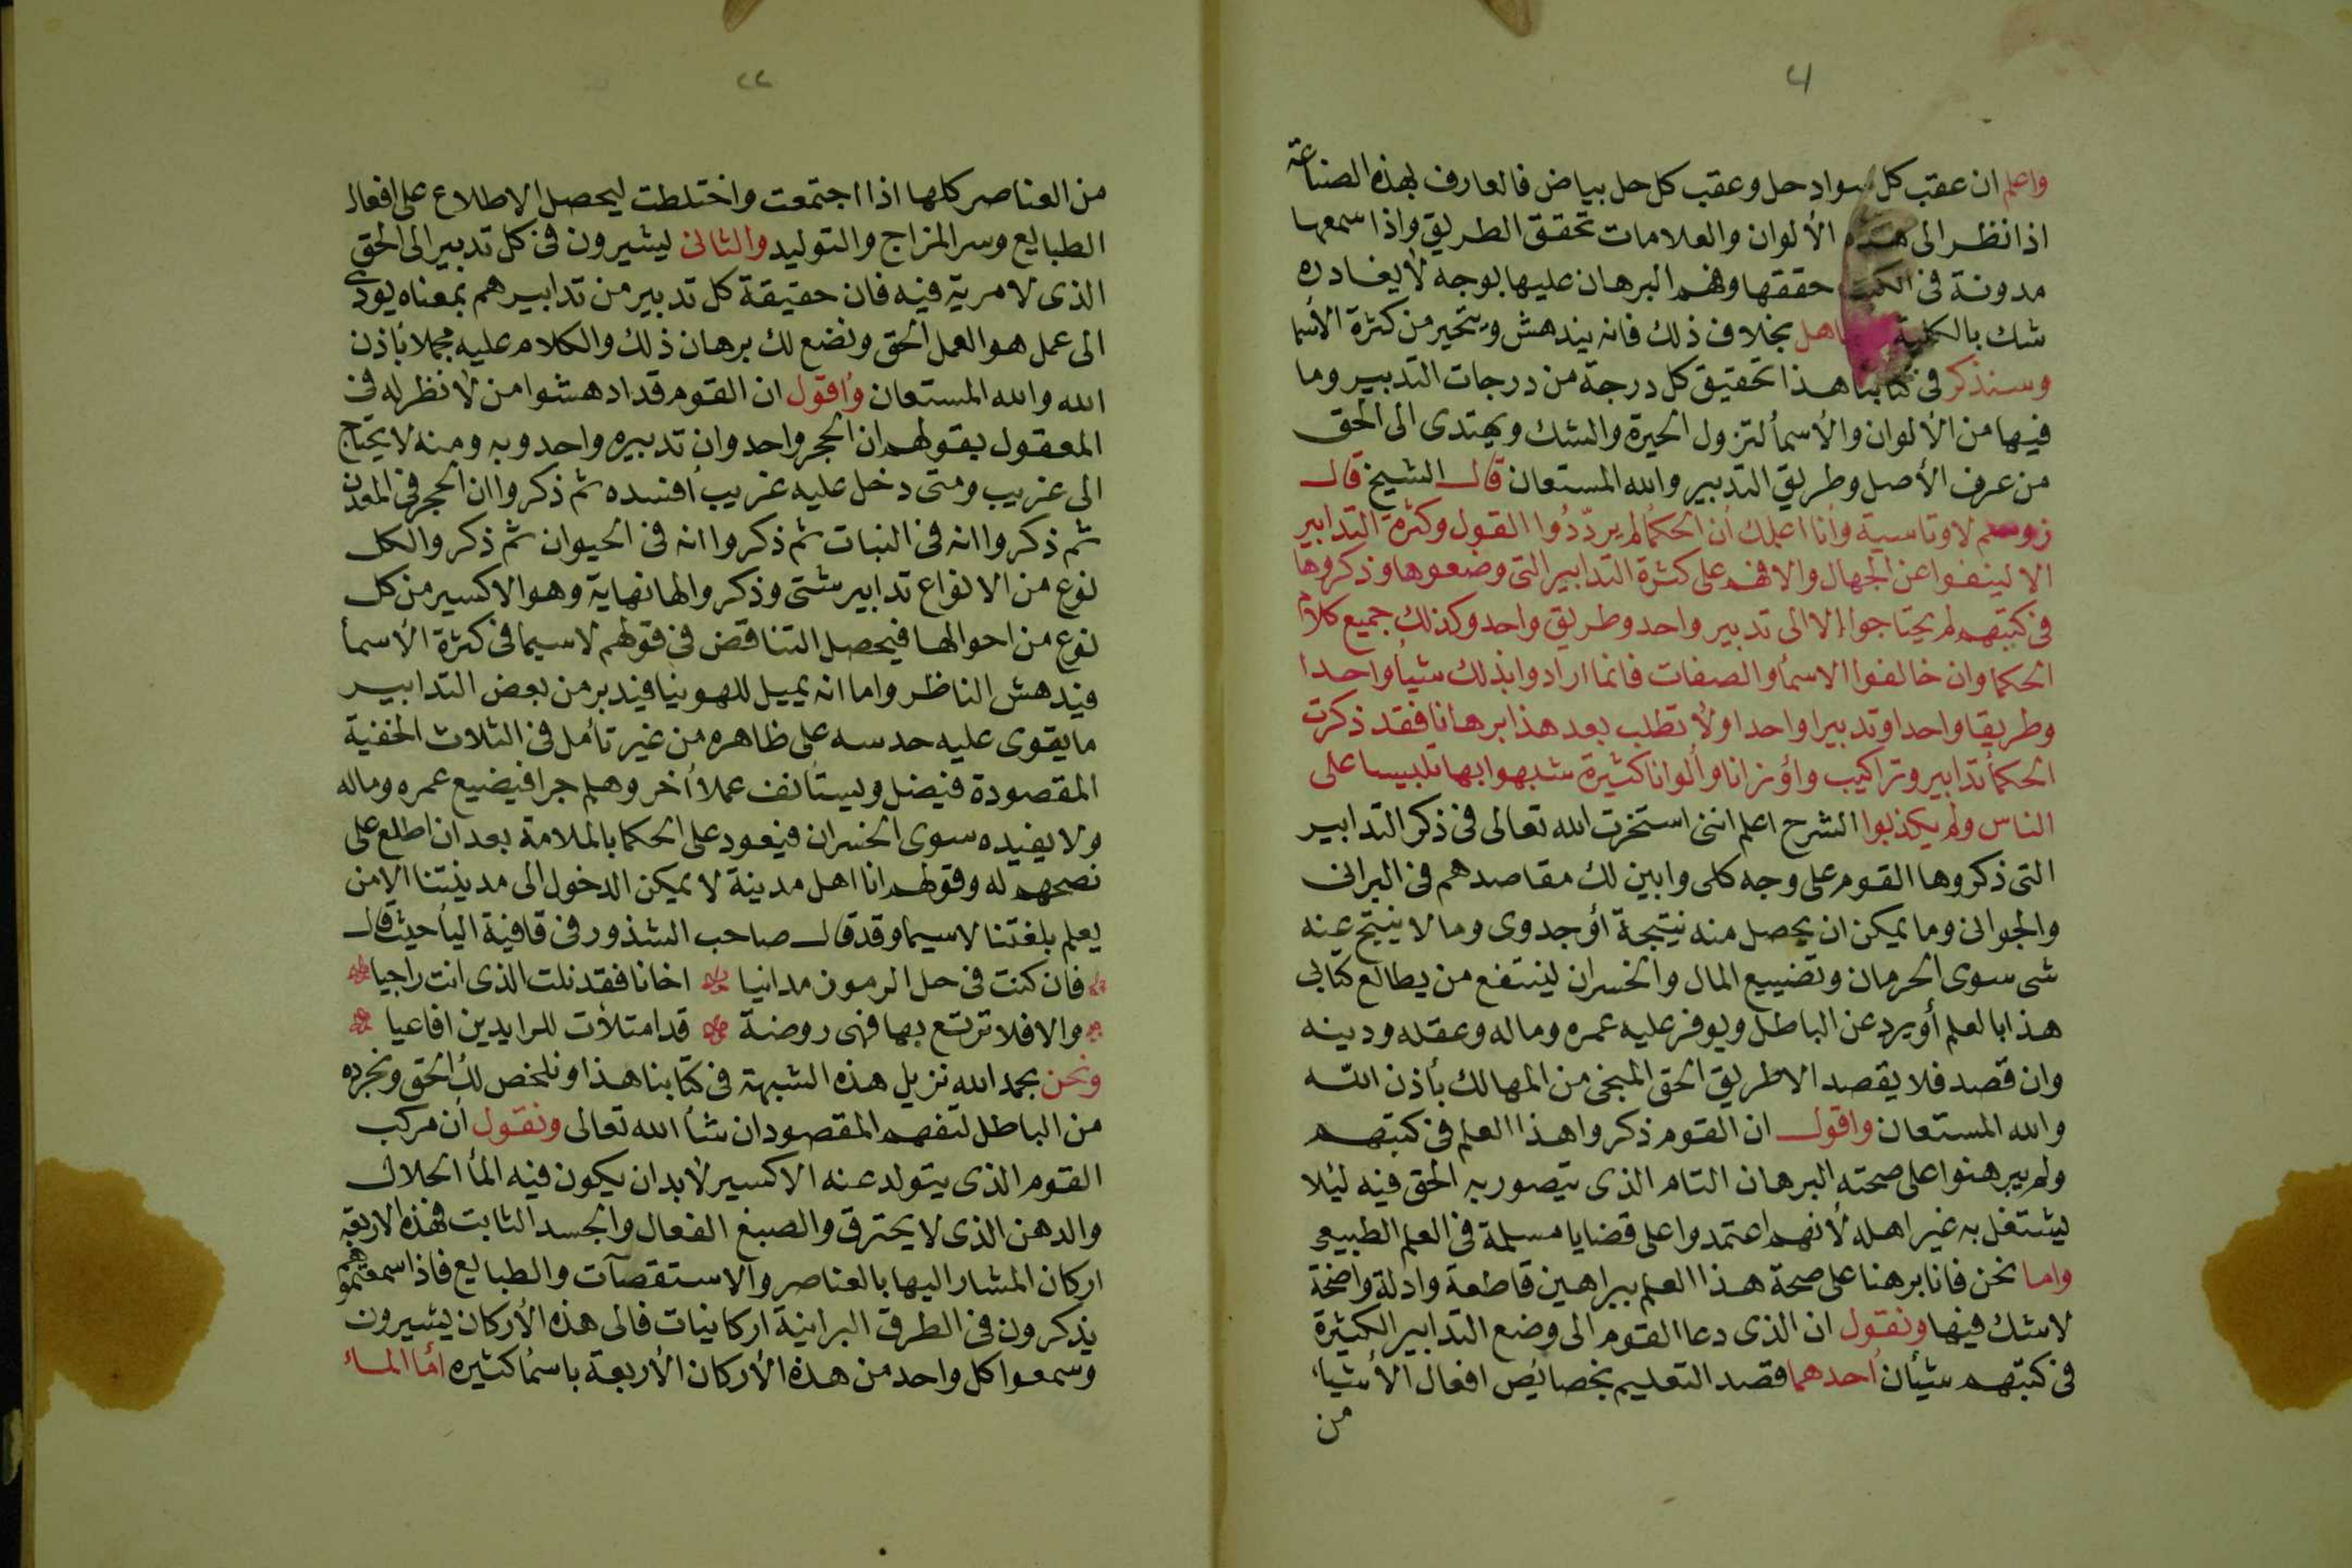 واعلم ان عقب كل سواد حل وعقب كل حل بياض فالعارف بهذه الصناعة
اذا نظر الى هذه الألوان والعلامات تحقق الطريق واذا سمعها
مدونة فى الكتب حققها وفهم البرهان عليها بوجه لا يغادره
شك بالكلية بخلاف ذلك فانه يندهش ويتحير من كثرة الأسما
وسنذكر فى كتابنا هذا تحقيق كل درجة من درجات التدبير وما
فيها من الألوان والأسمأ لتزول الحيرة والشك ويهتدى الى الحق
من عرف الأصل وطريق التدبير والله المستعان قال الشيخ قال
لاوتاسية وأنا اعلمك أن الحكما لم يردّدُوا القول وكثرة التدابير
الا لينفوا عن الجهال والا فهم على كثرة التدابير التى وضعوها وذكروها
فى كتبهم لم يحتاجوا إلا الى تدبير واحد وطريق واحد وكذلك جميع كلام
الحكما وان خالفوا الاسمأ والصفات فانما ارادوا بذلك شيأ واحدا
وطريقا واحدا وتدبيرا واحدا ولا تطلب بعد هذا برهانا فقد ذكرت
الحكمأ تدابير وتراكيب واؤزانا وألوانا كثيرة شبهوا بها تلبيسا على
الناس ولم يكذبوا الشرح اعلم اننى استخرت الله تعالى فى ذكر التدابير
التى ذكروها القوم على وجه كلى وابين لك مقاصدهم فى البرانى
والجوانى وما يمكن ان يحصل منه نتيجة أو جدوى وما لا ينتج عنه
شى سوى الحرمان وتضييع المال والخسران لينتفع من يطالع كتابى
هذا بالعلم أو يرد عن الباطل ويوفر عليه عمره وماله وعقله ودينه
وان قصد فلا يقصد الا طريق الحق المنجى من المهالك بأذن الله
والله المستعان واقول ان القوم ذكروا هذا العلم فى كتبهم
ولم يبرهنوا على صحته البرهان التام الذى يتصور به الحق فيه ليئلا
يشتغل به غير اهله لأنهم اعتمدوا على قضايا مسلمة فى العلم الطبيعى
واما نحن فانا برهنا على صحة هذا العلم ببراهين قاطعة وادلة واضحة
لا شك فيها ونقول ان الذى دعا القوم الى وضع التدابير الكثيرة
فى كتبهم شيأن أحدهما قصد التعليم بخصايص افعال الأشيا
من
من العناصر كلها اذا اجتمعت واختلطت ليحصل الاطلاع على افعال
الطبايع وسر المزاج والتوليد والثانى ليشيرون فى كل تدبير الى الحق
الذى لا مرية فيه فان حقيقة كل تدبير من تدابيرهم بمعناه يودى
الى عمل هو العمل الحق ونضع لك برهان ذلك والكلام عليه مجملا بأذن
الله والله المستعان وأقول ان القوم قد ادهشوا من لا نظر له فى
المعقول بقولهم ان الحجر واحد وان تدبيره واحد وبه ومنه لا يحتاج
الى غريب ومتى دخل عليه غريب أفسده ثم ذكروا ان الحجر فى المعدن
ثم ذكروا انه فى النبات ثم ذكروا انه فى الحيوان ثم ذكروا لكل
نوع من الانواع تدابير شتى وذكروا لها نهاية وهو الاكسير من كل
نوع من احوالها فيحصل التناقض فى قولهم لاسيما فى كثرة الأسمأ
فيندهش الناظر واما انه يميل للهوينا فيندبر من بعض التدابير
ما يقوى عليه حدسه على ظاهره من غير تأمل فى الثلاث الخفية
المقصودة فيضل ويستأنف عملا أخر وهلم جرا فيضيع عمره وماله
ولا يفيده سوى الخسران فيعود على الحكما بالملامة بعد ان اطلع على
نصحهم له وقولهم انا اهل مدينة لا يمكن الدخول الى مدينتنا الا من
يعلم بلغتنا لاسيما وقد قال صاحب الشذور فى قافية اليأ حيث قال
فان كنت فى حل الرموز مدانيا اخانا فقد نلت الذى انت راجيا
والا فلا ترتع بها فهى روضة قد امتلأت للرايدين افاعيا
ونحن بحمد الله نزيل هذه الشبهة فى كتابنا هذا ونلخص لك الحق ونجرده
من الباطل لتفهم المقصود ان شأ الله تعالى ونقول أن مركب
القوم الذى يتولد عنه الاكسير لا بد ان يكون فيه المأ الحلال
والدهن الذى لا يحترق والصبغ الفعال والجسد الثابت فهذه الاربعة
اركان المشار اليها بالعناصر والاستقصآت والطبايع فاذا سمعتموهم
يذكرون فى الطرق البرانية اركانيات فالى هذه الأركان يشيرون
وسمعوا كل واحد من هذة الأركان الأربعة باسمأ كثيره أما الماء